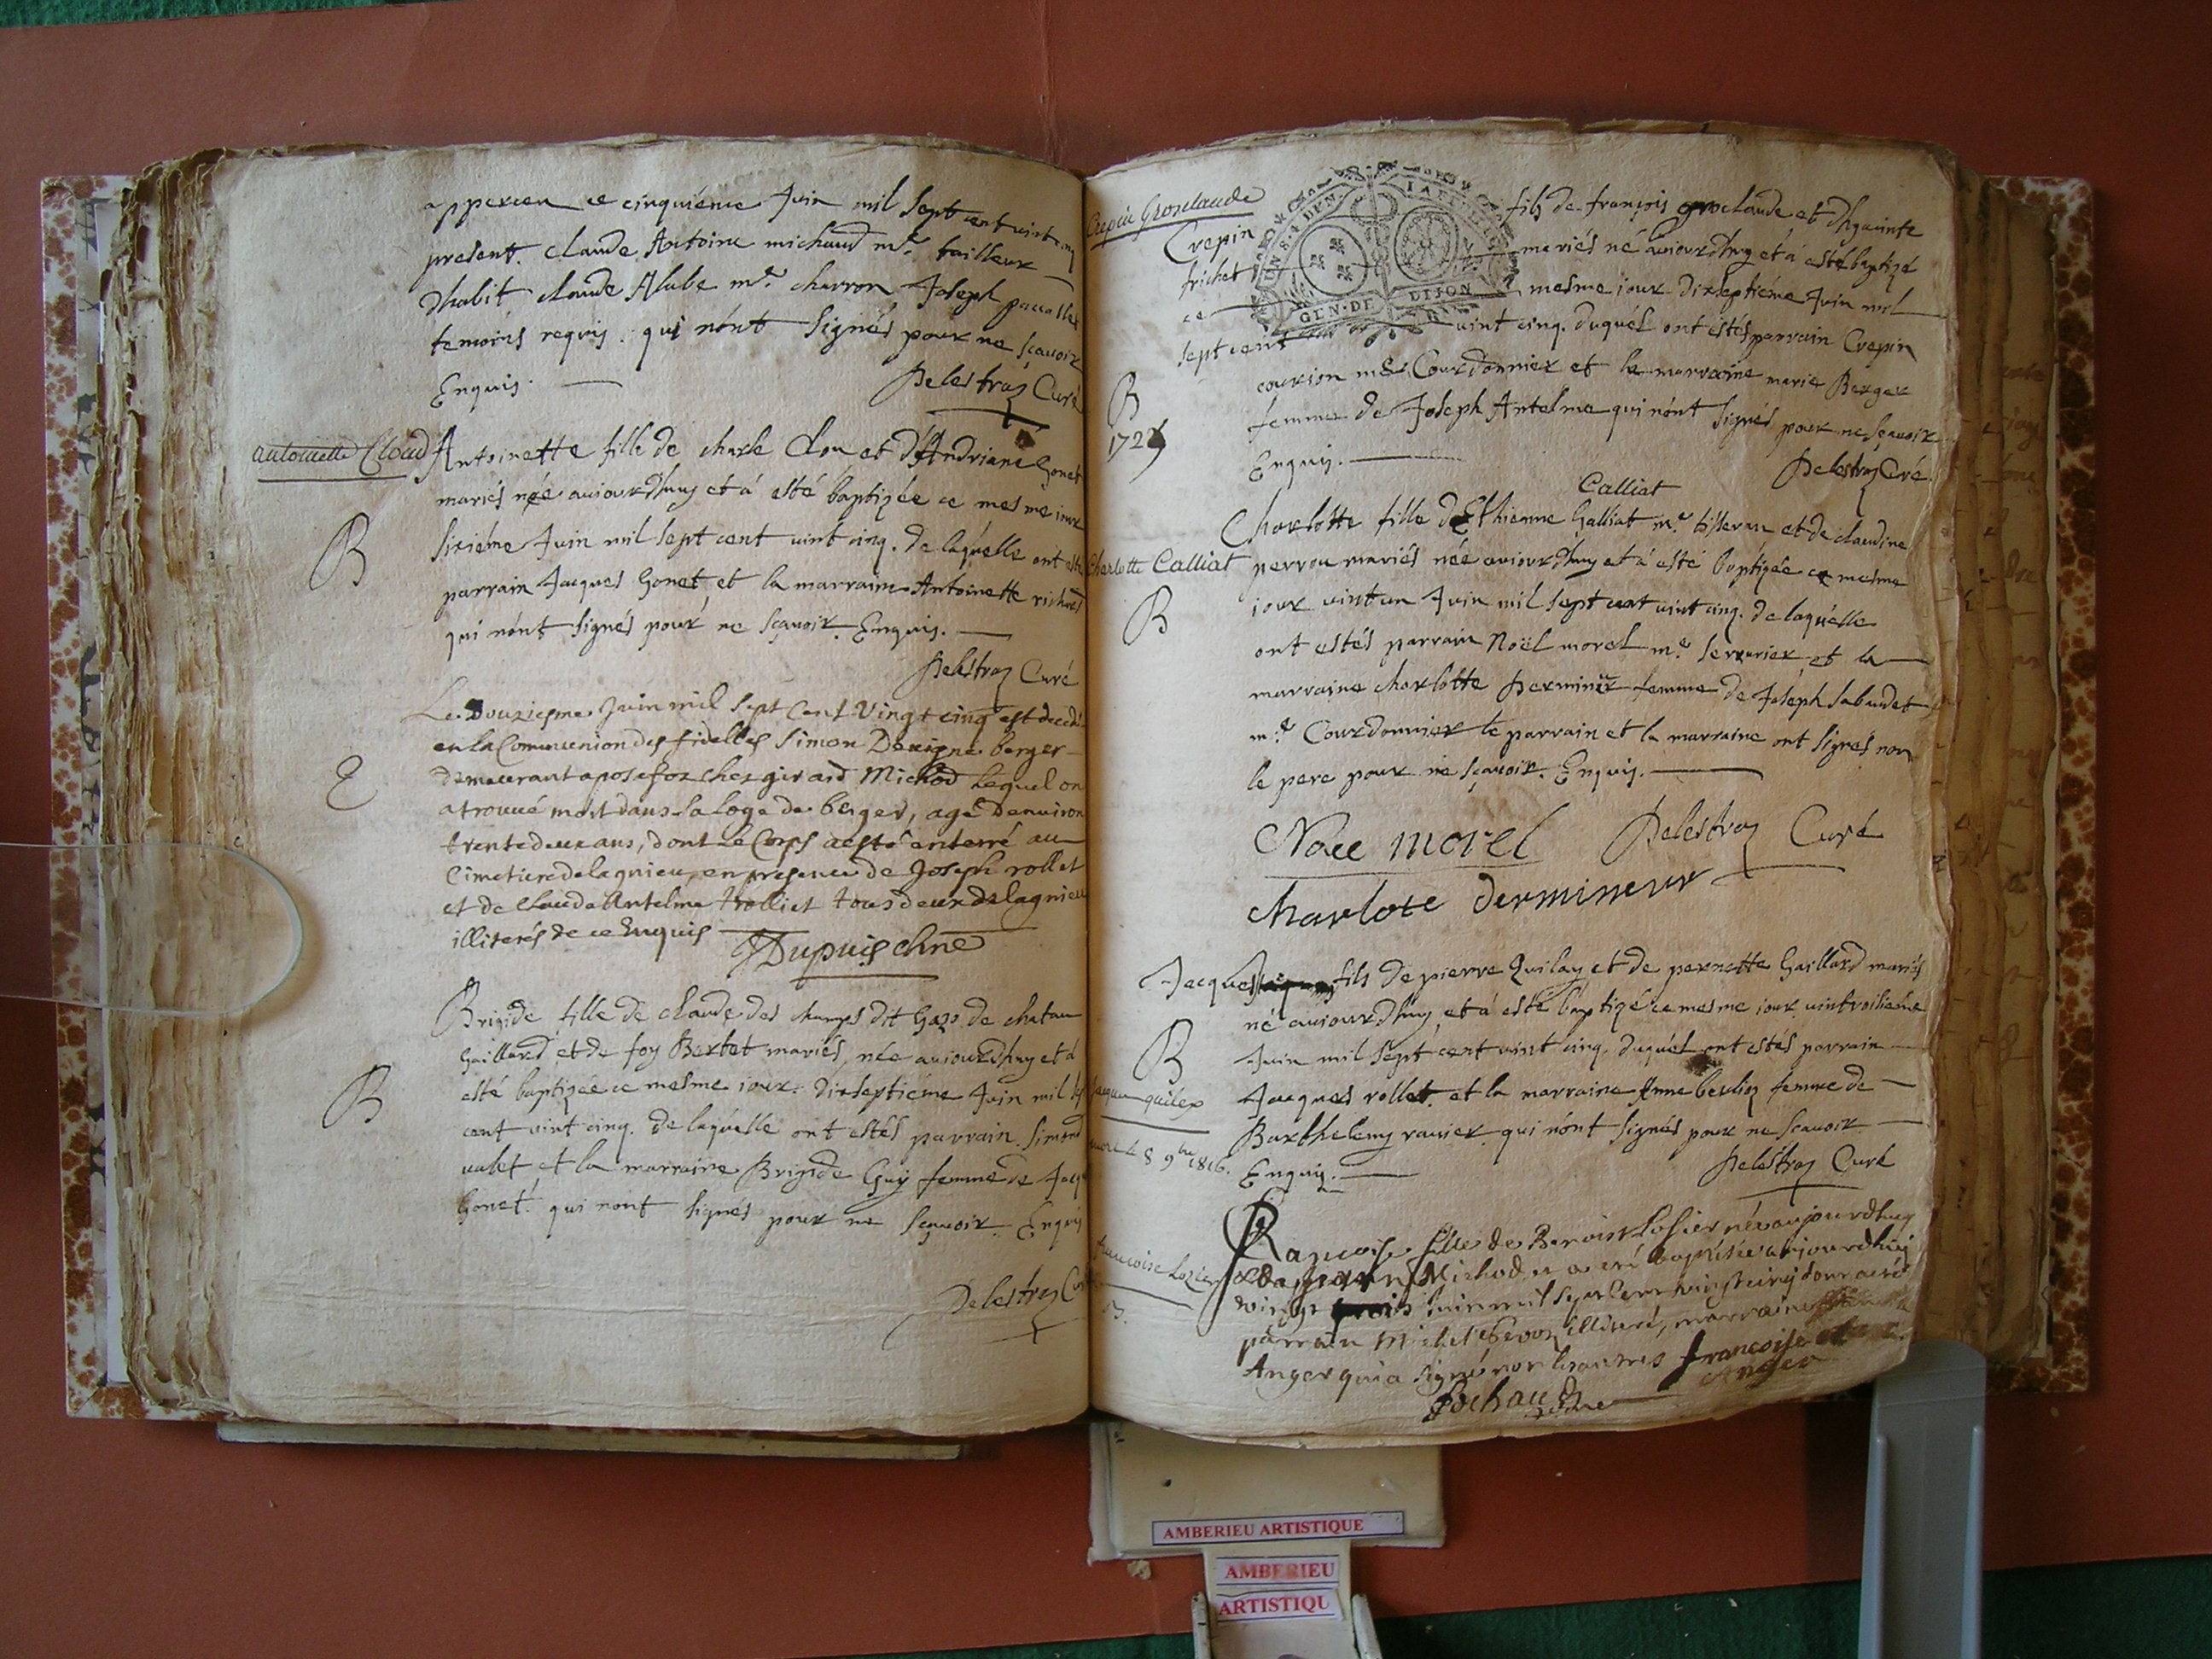 apperceu ce cinquiéme Juin mil Sept cent vint cinq
present. claude Antoine michaud me. tailleur
dhabit claude Alabe me. charron Joseph
temoins requis. qui nónt Signés pour ne scavoir
Enquis. Delestraz Curé
antoinette Cloud
Antoinette fille de charle Clou et d'Andriane Gonet
mariés née auiourdhuy et á esté baptizée ce mesme iour
Sixiéme Juin mil Sept cent vint cinq. de laquélle ont esté
B
parrain Jacques Gonet et la marraine Antoinette
qui nónt Signés pour ne sçavoir. Enquis.
Delestraz Curé
Le Douziesme Juin mil Sept Cent Vingt cinq est decedé
en la Communion des fidelles Simon Devigne berger
E
demeurant a posafor chez girard Michod Lequel on
a trouvé mort dans sa loge de berger, agé Denviron
trente deux ans, dont Le Corps a esté enterré au
Cimetiere de lagnieu, en presence de Joseph rollet
et de Claude Antelme trolliet tous deux de lagnieu
illiterés de ce Enquis
Dupuis chne
Brigide fille de claude des champs dit Gazo de chatau
Gaillard et de foy Bertet mariés, née auiourdhuy et á
B
esté baptizée ce mesme iour. Dixseptiéme Juin mil Sept
cent vint cinq. de laquélle ont estés parrain. Simond
valet et la marraine Brigide Guy femme de Jacq
Gonet. qui nont signés pour ne sçavoir. Enquis
Delestraz Curé
Crepin Groselaude
Crepin fils de françois groclaude et dhyacinte
frichet mariés né auiourdhuy et á esté baptizé
ce mesme iour Dixseptiéme Juin mil
GEN. DE DIJON
sept cent vint cinq. duquél ont estés parrain Crepin
courion me. Courdonnier et la marraine marie Berger
B
1725
femme de Joseph Antelme qui nónt Signés pour ne sçavoir
Enquis. Delestraz Curé.
Calliat
Charlotte fille d'Ethienne Galliat me. tisseran et de claudine
Charlotte Calliat
perrou mariés née auiourdhuy et á esté baptizée ce mesme
B
iour vint un Juin mil sept cent vint cinq. de laquélle
ont estés parrain Noël morel me. Serrurier et la
marraine charlotte Derminür femme de Joseph Sabaudet
me. Courdonnier le parrain et la marraine ont signés non
le pere pour ne sçavoir. Enquis.
Noee morel Delestraz Curé
charlote dermineur
Jacques fils de pierre Quilay et de pernette Gaillard mariés
né auiourdhuy et á esté baptizé ce mesme iour vintroisiéme
B
Juin mil Sept cent vint cinq. duquél ont estés parrain
Jacques quilex
Jacques rollet. et la marraine Anne beulioz femme de
Barthelemy ravier qui nónt Signés pour ne scavoir
mort 8 9bre 1816.
Enquis. Delestraz Curé
françoise Lozier
B.
françoise fille de Benoist Losier née aujourdhuy
Michod et a eté baptisée aujourdhuy
vingt Juin mil sept cent vingt cinq dont a eté
parrain Michel illiteré, marraine
Anger qui a signé non les autres francoise
Anger
Cochaud
AMBERIEU ARTISTIQUE
AMBERIEU
ARTISTIQU